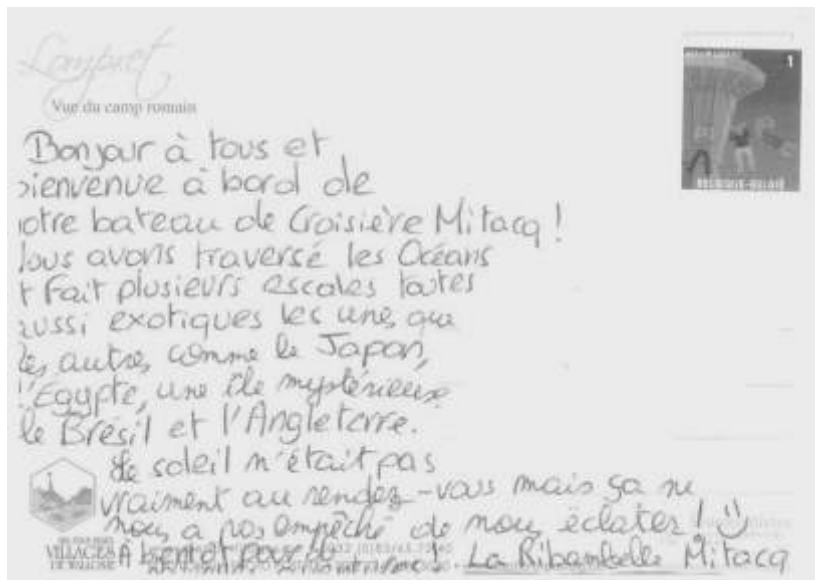 Lompret
Vue du camp romain
1
Bonjour à tous et
ienvenue à bord de
otre bateau de Croisière Mitacq !
ous avons traversé les Océans
t Fait plusieurs escales toutes
ussi exotiques les unes que
les autres comme le Japon,
l'Egypte, une île mystérieuse
le Brésil et l'Angleterre.
Le soleil n'était pas
vraiment au rendez-vous mais ça ne
nous a pas empêché de nous éclater !
VILLAGES
DE WALLONIE
A bientôt La Ribambelle Mitacq